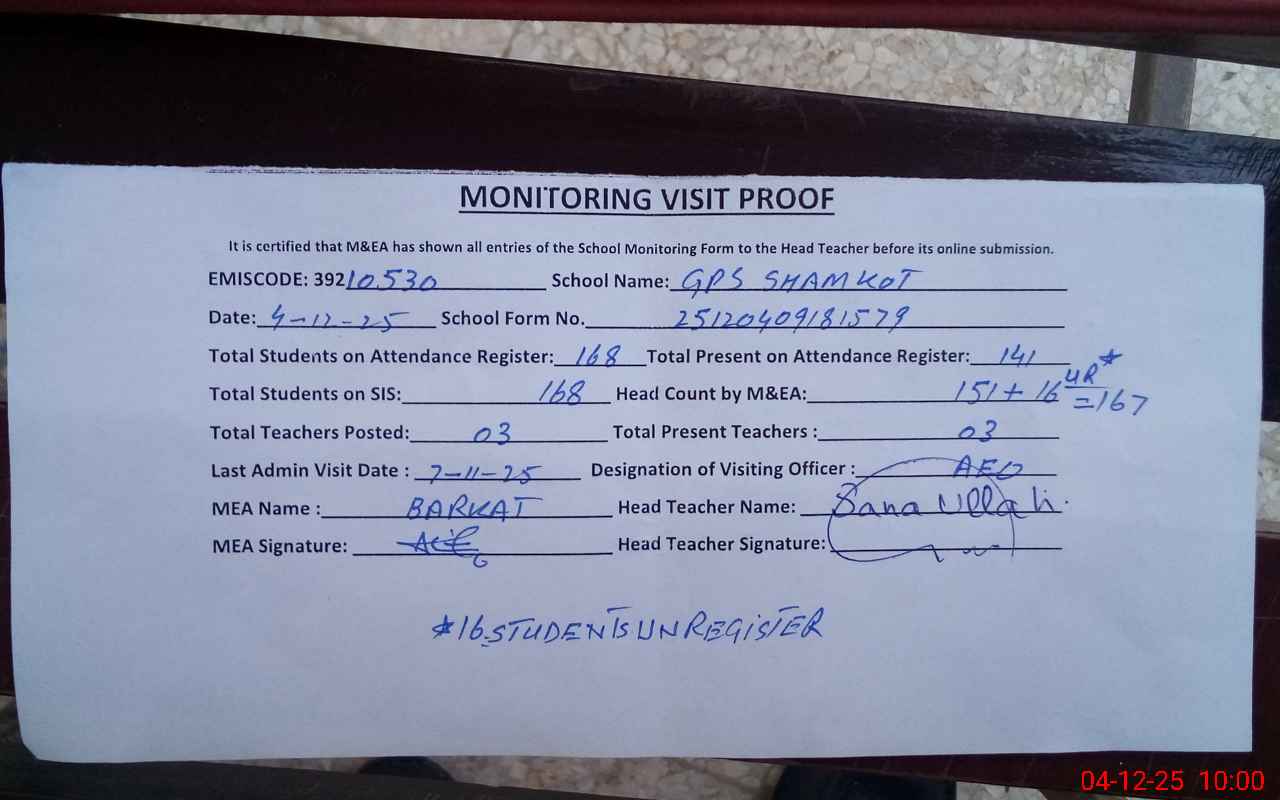 MONITORING VISIT PROOF
It is certified that M&EA has shown all entries of the School Monitoring Form to the Head Teacher before its online submission.
EMISCODE: 39210530 School Name: GPS SHAMKOT
Date: 4-12-25 School Form No. 25120409181579
Total Students on Attendance Register: 168 Total Present on Attendance Register: 141
Total Students on SIS: 168 Head Count by M&EA: 151 + 16 UR* = 167
Total Teachers Posted: 03 Total Present Teachers : 03
Last Admin Visit Date : 7-11-25 Designation of Visiting Officer : AEO
MEA Name : BARKAT Head Teacher Name: Sana Ullah
MEA Signature: Head Teacher Signature:
*16 STUDENTS UNREGISTER
04-12-25 10:00